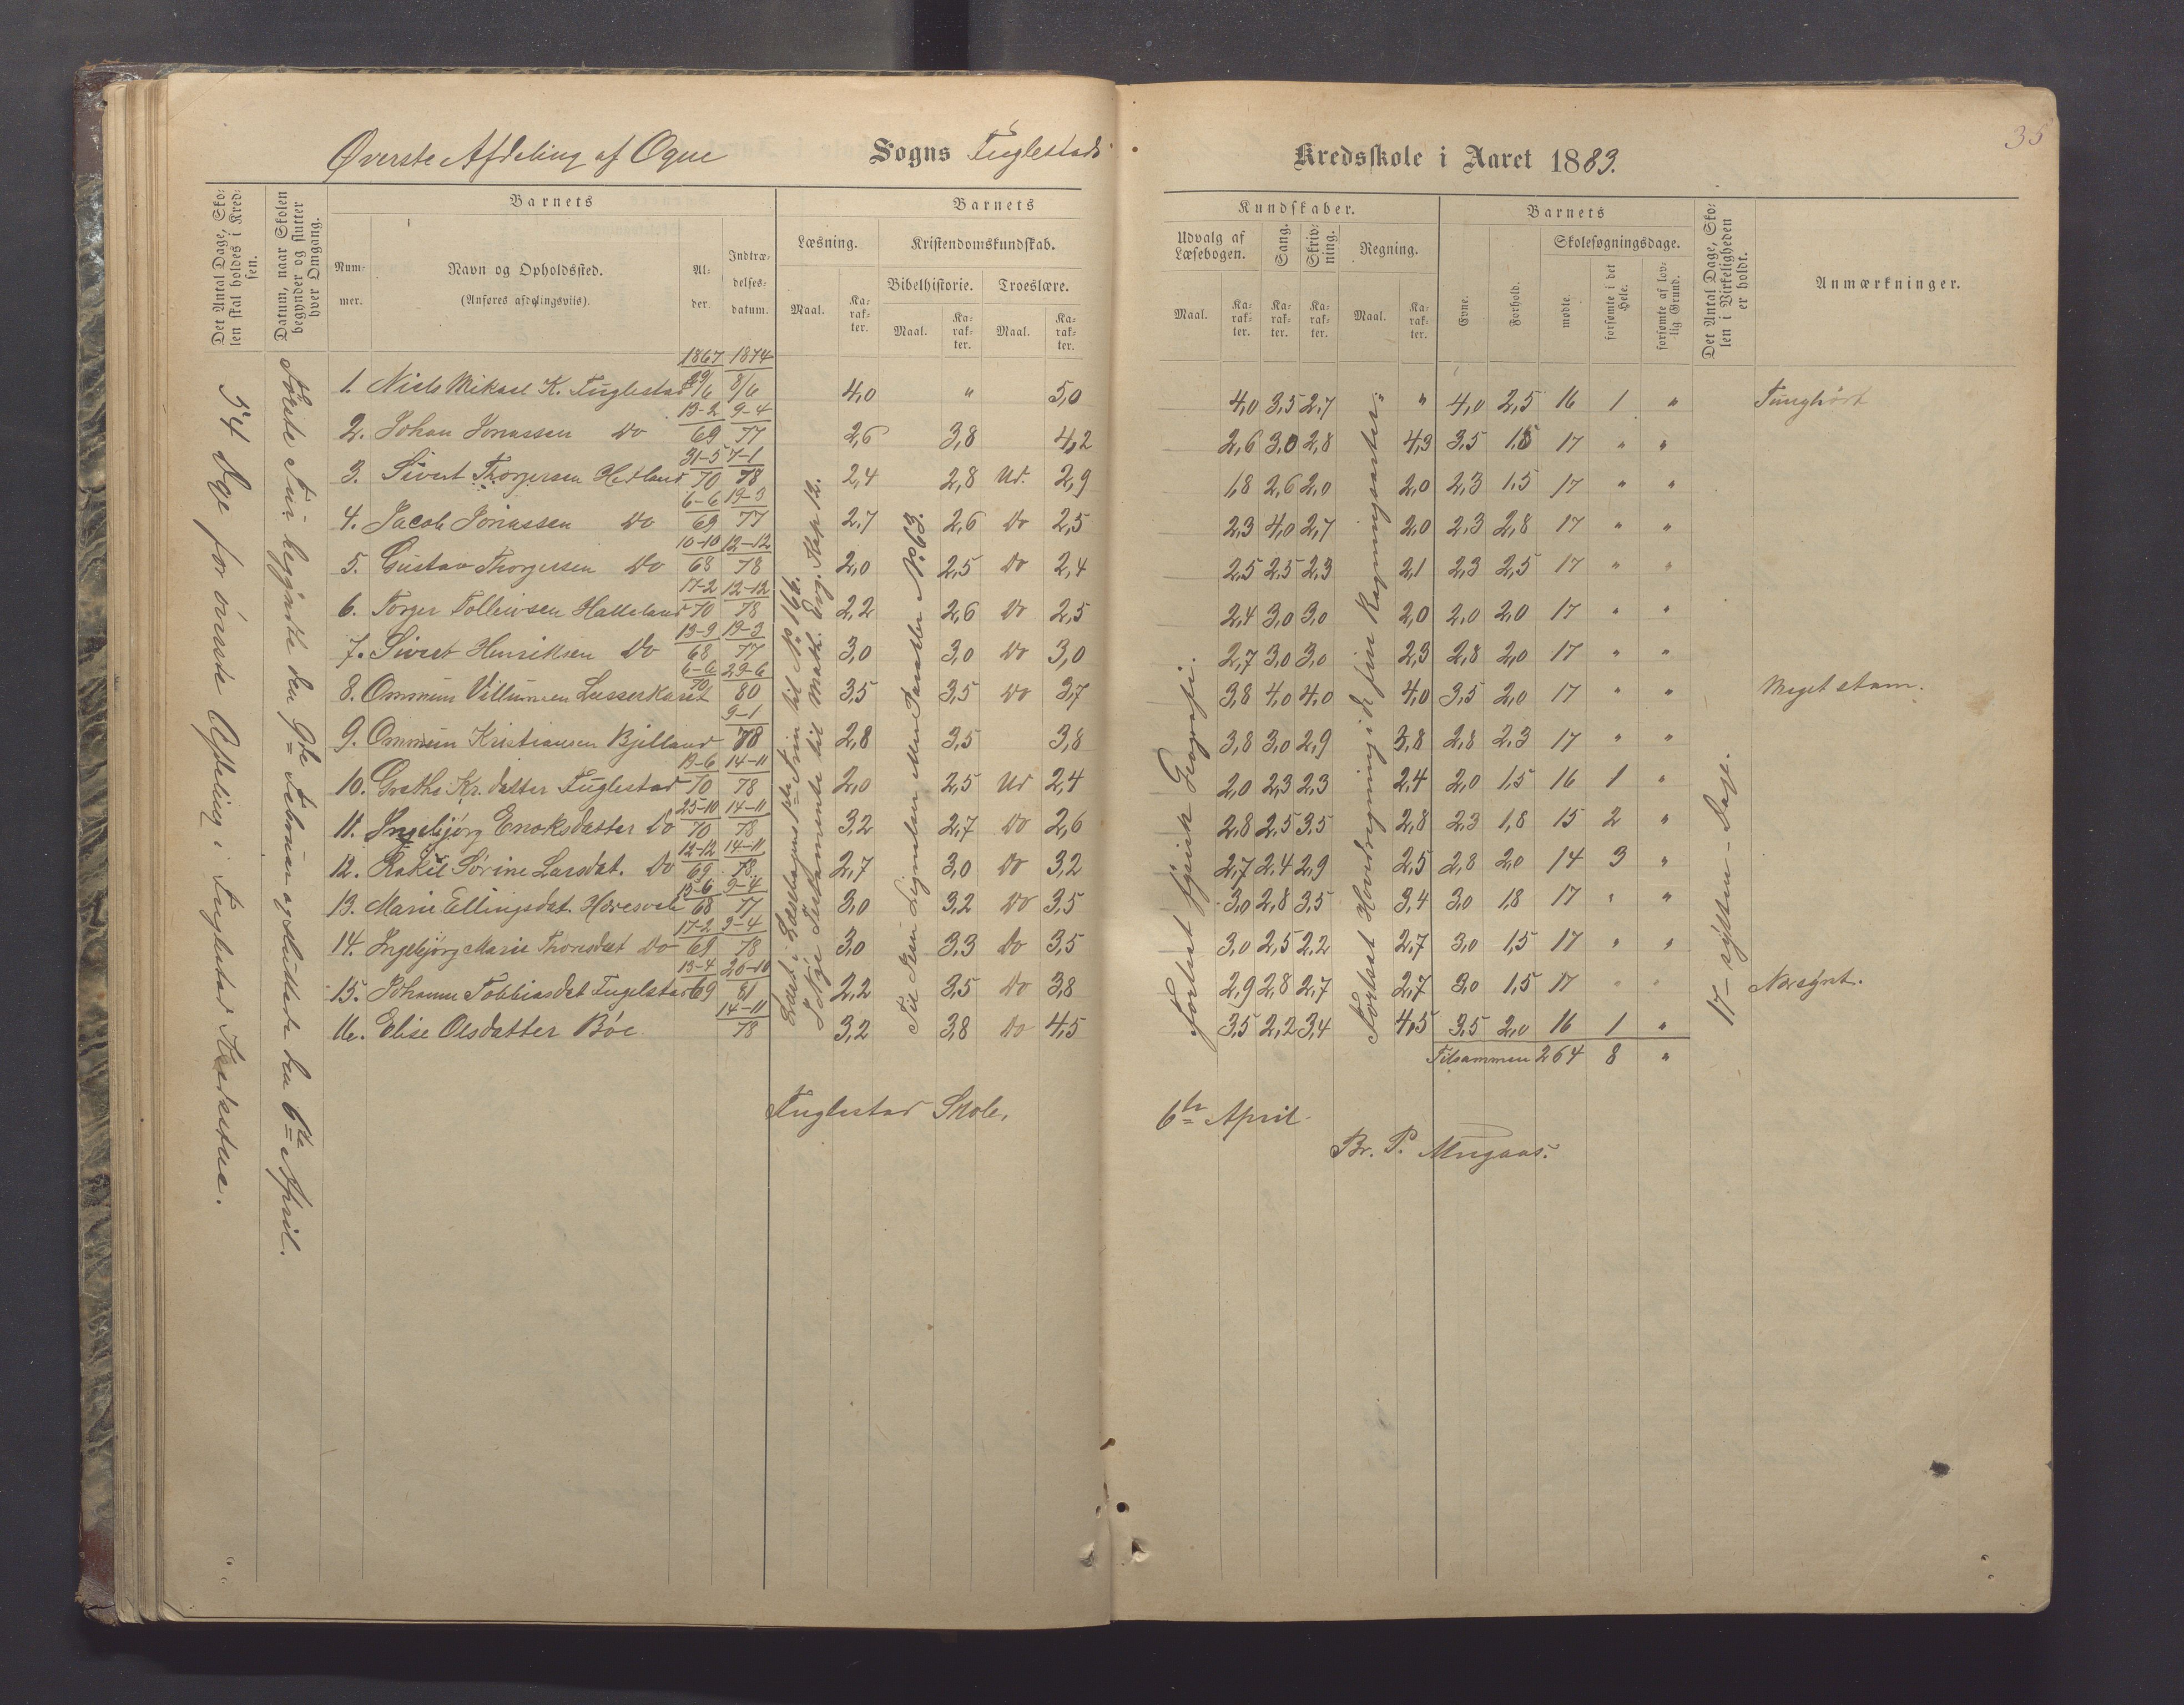 35
Øverste Afdeling af Ogne Sogns Fuglestads Kredsskole i Aaret 1883.
Det Antal Dage, Skolen skal holdes i Kredsen.
Datum, naar Skolen begynder og slutter hver Omgang.
Barnets
Barnets
Kundskaber.
Barnets
Det Antal Dage, Skolen i Virkeligheden er holdt.
Anmærkninger.
Nummer.
Navn og Opholdssted.
(Anføres afdelingsviis).
Alder.
Indtrædelsesdatum.
Læsning.
Kristendomskundskab.
Bibelhistorie.
Troeslære.
Udvalg af Læsebogen.
Sang.
Skrivning.
Regning.
Evne.
Forhold.
Skolesøgningsdage.
mødte.
forsømte i det Hele.
forsømte af lovlig Grund.
Maal. Karakter. Maal. Karakter. Maal. Karakter. Maal. Karakter. Karakter. Karakter. Maal. Karakter.
54 Dge for øverste Afdeling i Fuglestad Kredsstue.
Første Trin begyndte den 9de Februar og sluttede den 6te April.
Læst i Læsebogens 1ste Trin til No 166.
I Nye Testamente til Math. Evg. Kap 12.
Fortsat fysisk Geografi.
17 – sytten – Dage.
1867 1874
1. Niels Mikael K. Fuglestad 29/6 8/6 4,0 " 5,0 4,0 3,5 2,7 " 4,0 2,5 16 1 " Tunghørt
13-2 9-4
2. Johan Jonassen Do 69 77 2,6 3,8 4,2 2,6 3,0 2,8 4,3 3,5 1,5 17 " "
31-5 7-1
3. Sivert Thorgersen Hetland 70 78 2,4 2,8 Ud. 2,9 1,8 2,6 2,0 2,0 2,3 1,5 17 " "
6-6 19-3
4. Jacob Jonassen Do 69 77 2,7 2,6 Do 2,5 2,3 4,0 2,7 2,0 2,3 2,8 17 " "
10-10 12-12
5. Gustav Thorgersen Do 68 78 2,0 2,5 Do 2,4 2,5 2,5 2,3 2,1 2,3 2,5 17 " "
17-2 12-12
6. Torger Tollevsen Halleland 70 78 2,2 2,6 Do 2,5 2,4 3,0 3,0 2,0 2,0 2,0 17 " "
13-9 19-3
7. Sivert Henriksen Do 68 77 3,0 3,0 Do 3,0 2,7 3,0 3,0 2,3 2,8 2,0 17 " "
6-6 29-6
8. Ommun Villumsen 70 80 3,5 3,5 Do 3,7 3,8 4,0 4,0 4,0 3,5 2,0 17 " " Meget stam.
9-1
9. Ommun Kristiansen Bjelland 78 2,8 3,5 3,8 3,8 3,0 2,9 3,8 2,8 2,3 17 " "
19-6 14-11
10. Grethe Kr. datter Fuglestad 70 78 2,0 2,5 Ud 2,4 2,0 2,3 2,3 2,4 2,0 1,5 16 1 "
25-10 14-11
11. Ingebjørg Enoksdatter Do 70 78 3,2 2,7 Do 2,6 2,8 2,5 3,5 2,8 2,3 1,8 15 2 "
12-12 14-11
12. Rakel Sørine Larsdat. Do 69 78 2,7 3,0 Do 3,2 2,7 2,4 2,9 2,5 2,8 2,0 14 3 "
15-6 9-4
13. Marie Ellingsdat. 68 77 3,0 3,2 Do 3,5 3,0 2,8 3,5 3,4 3,0 1,8 17 " "
17-2 9-4
14. Ingebjørg Marie Thoresdat Do 69 78 3,0 3,3 Do 3,5 3,0 2,5 2,2 2,7 3,0 1,5 17 " "
13-4 26-10
15. Johanne Tobbiasdat Fuglestad 69 81 2,2 3,5 Do 3,8 2,9 2,8 2,7 2,7 3,0 1,5 17 " " Nærsynt.
14-11
16. Elise Olsdatter Bøe 78 3,2 3,8 Do 4,5 3,5 2,2 3,4 4,5 3,5 2,0 16 1 "
Tilsammen 264 8 "
Fuglestad Skole, 6te April
Br. P. Mugaas.